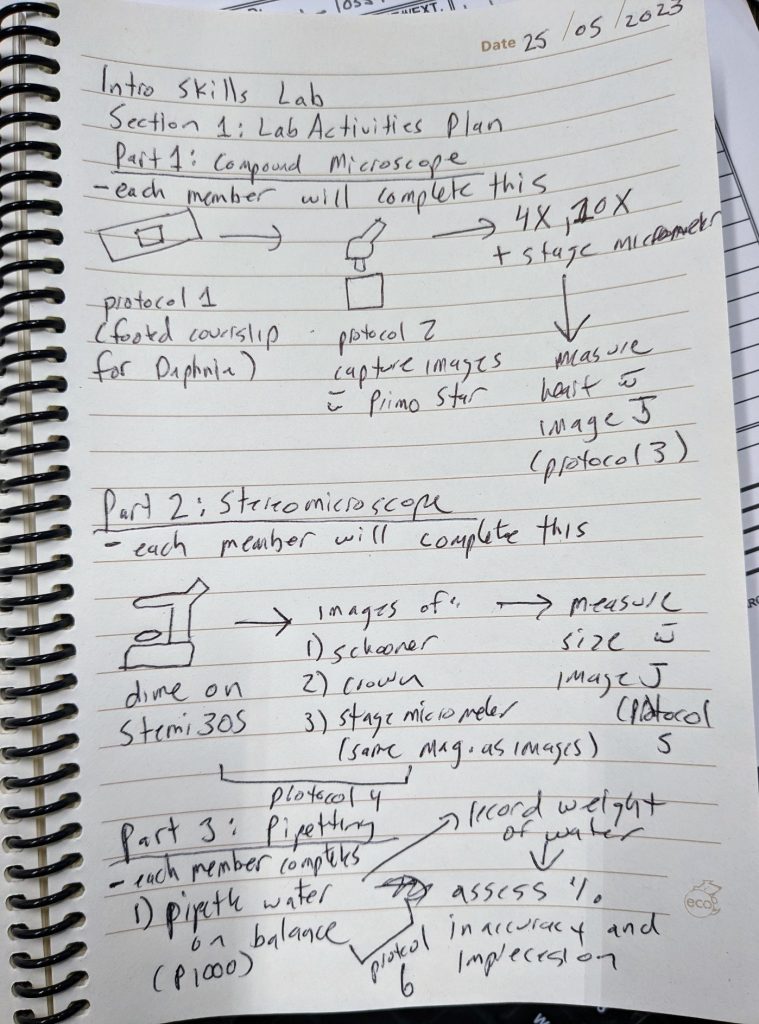 Date 25/05/2023
Intro Skills Lab
Section 1: Lab Activities Plan
Part 1: Compound Microscope
- each member will complete this
4X, 10X
+ stage micrometer
protocol 1
(footed coverslip
for Daphnia)
protocol 2
capture images
w̄ Primo Star
measure
heart w̄
image J
(protocol 3)
Part 2: Stereomicroscope
- each member will complete this
dime on
Stemi 305
images of:
1) schooner
2) crown
3) stage micrometer
(same mag. as images)
protocol 4
measure
size w̄
image J
(protocol
5
Part 3: Pipetting
- each member completes
1) pipette water
on balance
(P1000)
record weight
of water
assess %
inaccuracy and
imprecesion
protcol
6
eco